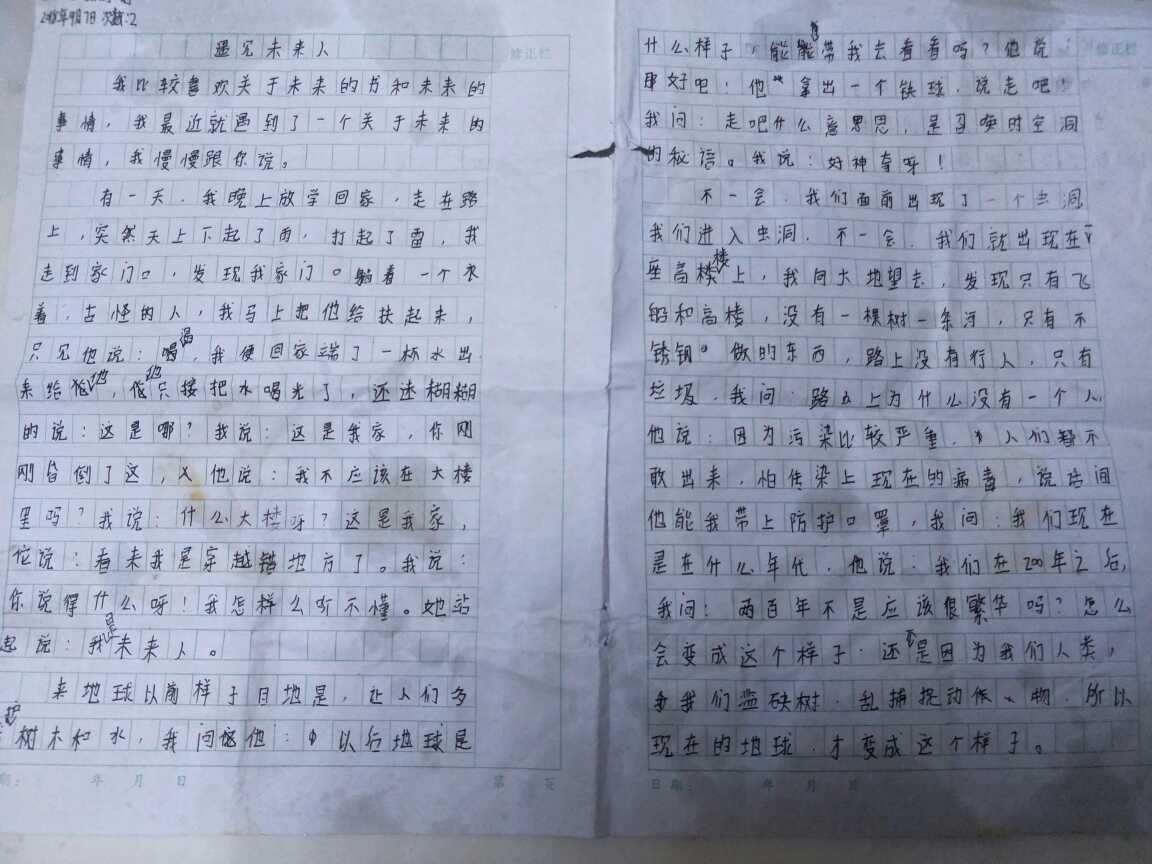 年9月7日 次数:2
遇见未来人
修正栏
我比较喜欢关于未来的书和未来的
事情,我最近就遇到了一个关于未来的
事情,我慢慢跟你说。
有一天,我晚上放学回家,走在路
上,突然天上下起了雨,打起了雷,我
走到家门口,发现我家门口躺着一个衣
着,古怪的人,我马上把他给扶起来,
只见他说:渴,我便回家端了一杯水出
来给他,他只接把水喝光了,还迷糊糊
的说:这是哪?我说:这是我家,你刚
刚昏倒了这,他说:我不应该在大楼
里吗?我说:什么大楼呀?这是我家,
他说:看来我是穿越错地方了。我说:
你说得什么呀!我怎样么听不懂。她站
起说:我是未来人。
来地球以前样子目地是,让人们多
护树木和水,我问他:以后地球是
期: 年 月 日 第 页
什么样子,能带我去看看吗?他说
好吧!他拿出一个铁球,说走吧!
我问:走吧什么意思,是召唤时空洞
的秘语。我说:好神奇呀!
修正栏
不一会,我们面前出现了一个虫洞
我们进入虫洞,不一会,我们就出现在
座高楼上,我向大地望去,发现只有飞
船和高楼,没有一棵树一条河,只有不
锈钢做的东西,路上没有行人,只有
垃圾,我问:路上为什么没有一个人,
他说:因为污染比较严重,人们都不
敢出来,怕传染上现在的病毒,说话间
他能我带上防护口罩,我问:我们现在
是在什么年代,他说:我们在200年之后,
我问:两百年不是应该很繁华吗?怎么
会变成这个样子,还不是因为我们人类,
我们滥砍树,乱捕捉动物,所以
现在的地球,才变成这个样子。
日期: 年 月 日